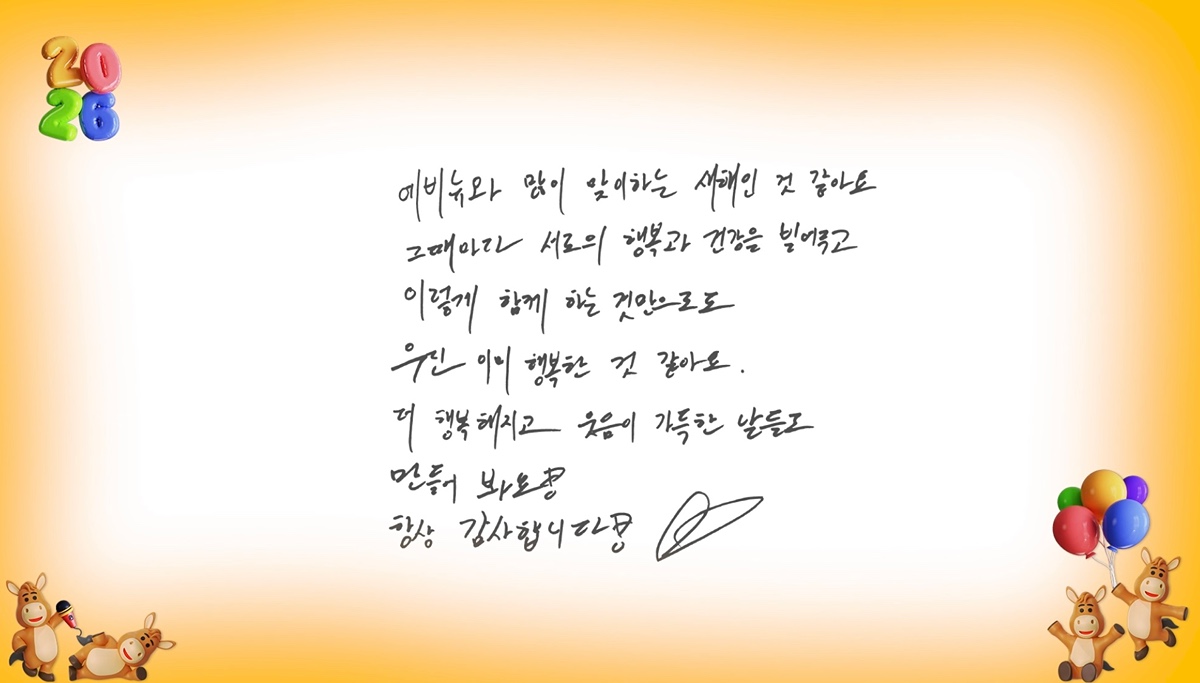 20
26
에비뉴와 많이 맞이하는 새해인 것 같아요
그때마다 서로의 행복과 건강을 빌어주고
이렇게 함께 하는 것만으로도
우린 이미 행복한 것 같아요.
더 행복해지고 웃음이 가득한 날들로
만들어 봐요!
항상 감사합니다!